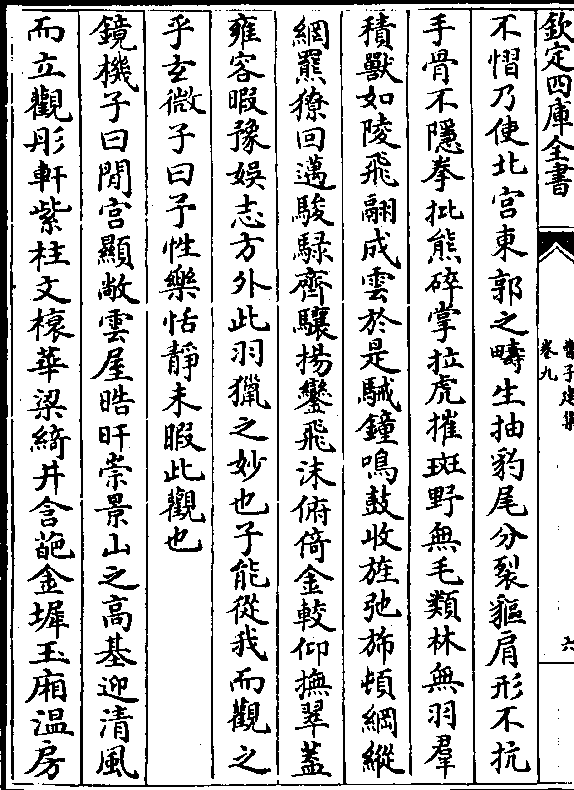 欽定四庫全書
曹子建集
卷九
六
不慴乃使北宮東郭之疇生抽豹尾分裂貙肩形不抗
手骨不隱拳批熊碎掌拉虎摧斑野無毛類林無羽羣
積獸如陵飛翮成雲於是駴鐘鳴鼓收旌弛斾頓綱縱
網羆獠回邁駿騄齊驤揚鑾飛沫俯倚金較仰撫翠蓋
雍容暇豫娛志方外此羽獵之妙也子能從我而觀之
乎玄微子曰予性樂恬靜未暇此觀也
鏡機子曰閒宮顯敞雲屋晧旰崇景山之高基迎清風
而立觀彤軒紫柱文榱華梁綺井含葩金墀玉廂溫房